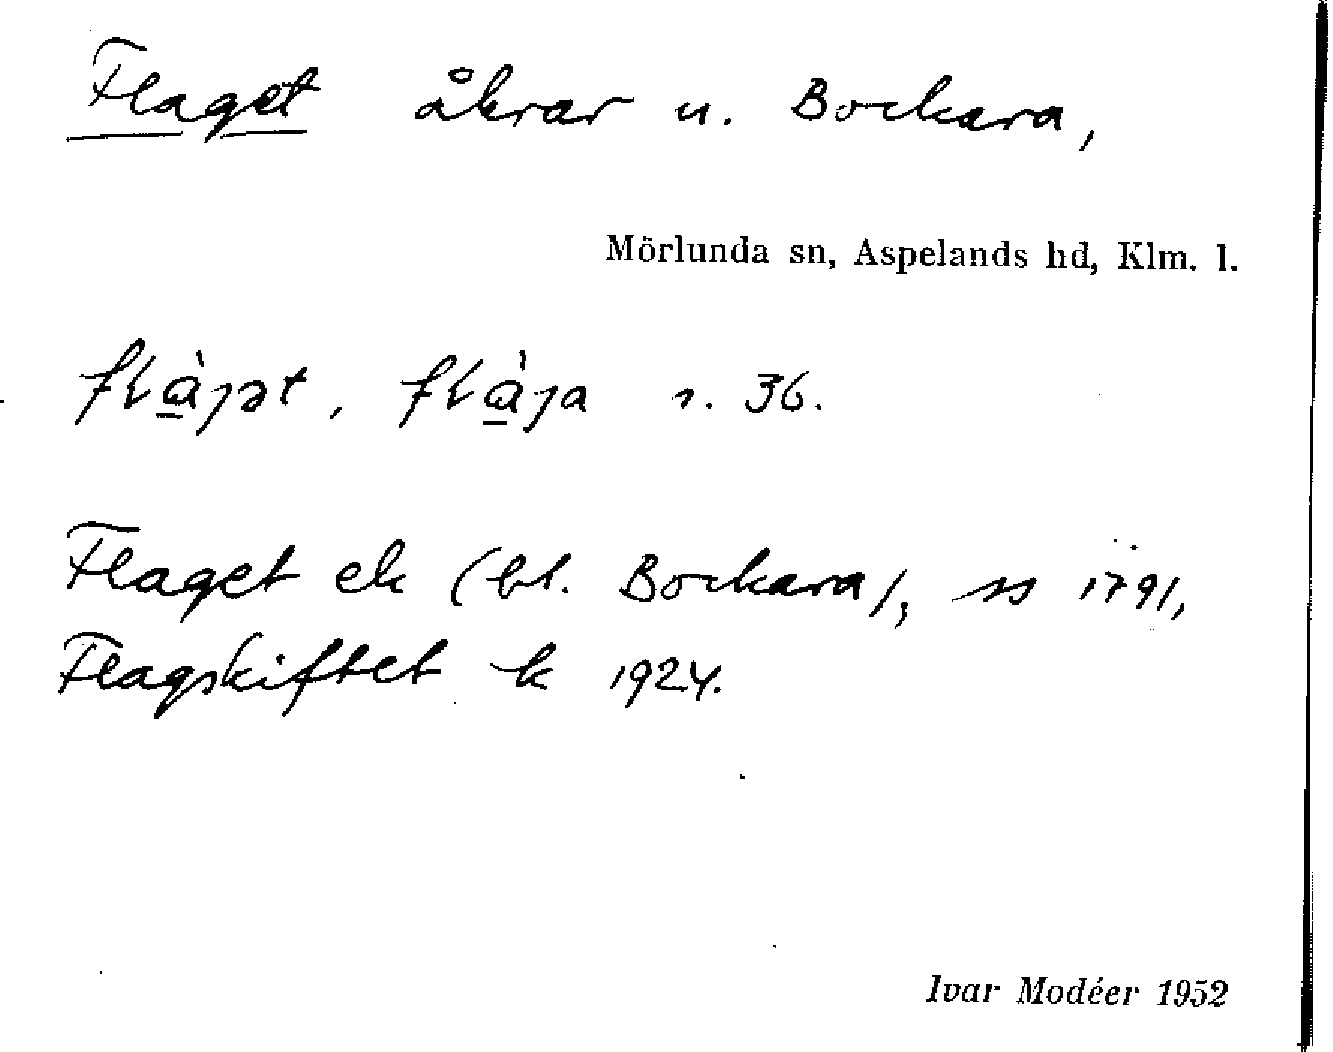 Flaget åkrar u. Bockara,
Mörlunda sn, Aspelands hd, Klm. l.
s. 36.
Flaget ek (bl. Bockara), ss 1791,
Flagskiftet k 1924.
Ivar Modéer 1952